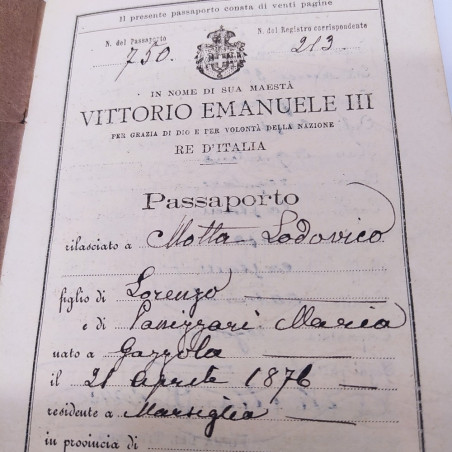 Il presente passaporto consta di venti pagine
N. del Passaporto
750.
N. del Registro corrispondente
213.
IN NOME DI SUA MAESTÀ
VITTORIO EMANUELE III
PER GRAZIA DI DIO E PER VOLONTÀ DELLA NAZIONE
RE D'ITALIA
Passaporto
rilasciato a Motta Lodovico
figlio di Lorenzo
e di Panizzari Maria
nato a Gazzola
il 21 aprile 1876
residente a Marsiglia
in provincia di